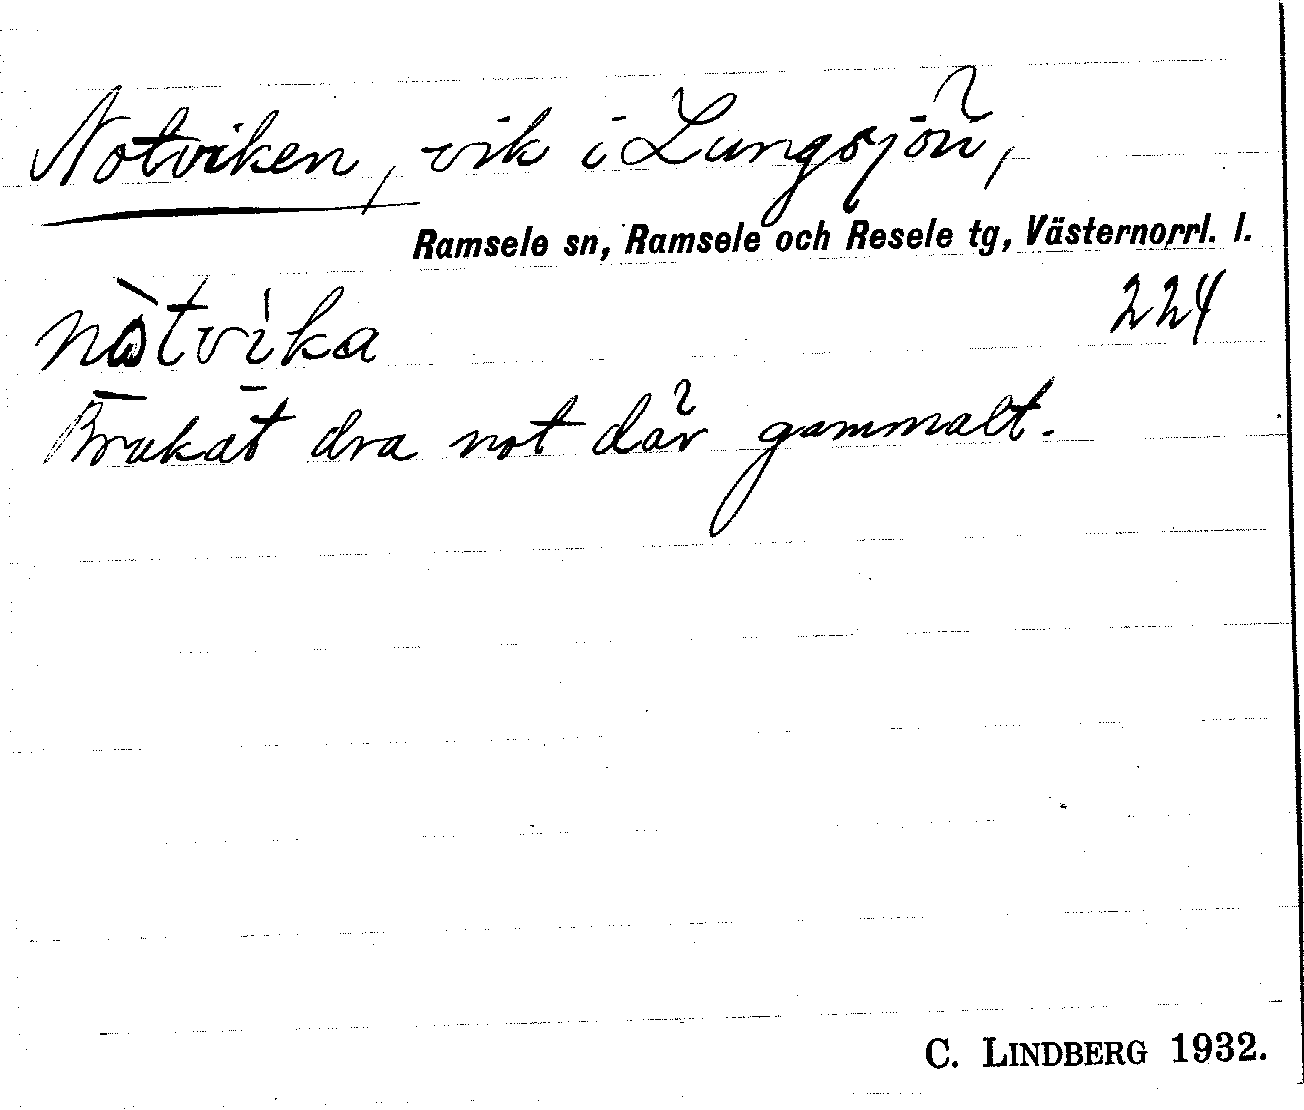 Notviken, vik i Lungsjön,
Ramsele sn, Ramsele och Resele tg, Västernorrl. l.
224
nòtvika
Brukat dra not där gammalt.
C. LINDBERG 1932.